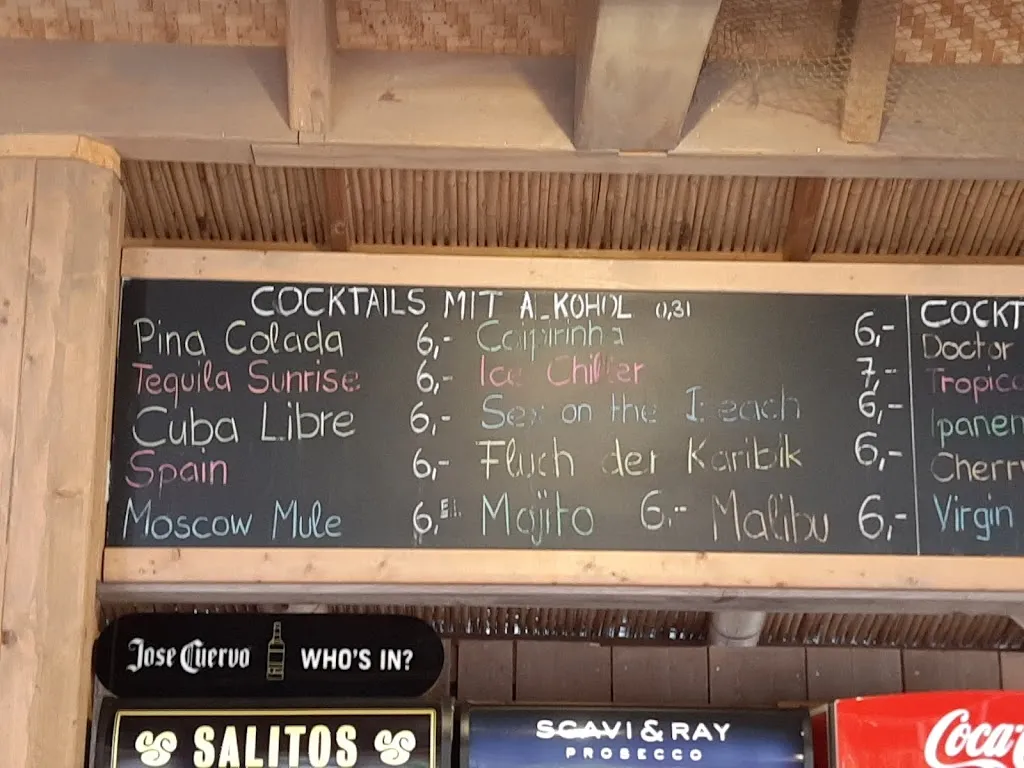 COCKTAILS MIT ALKOHOL 0,3l
Pina Colada 6,- Caipirinha 6,-
Tequila Sunrise 6,- Ice Chiller 7,-
Cuba Libre 6,- Sex on the Beach 6,-
Spain 6,- Fluch der Karibik 6,-
Moscow Mule 6, Mojito 6.- Malibu 6,-
COCKT
Doctor
Tropic
Ipanem
Cherry
Virgin
Jose Cuervo WHO'S IN?
SALITOS
SCAVI & RAY
PROSECCO
Coca